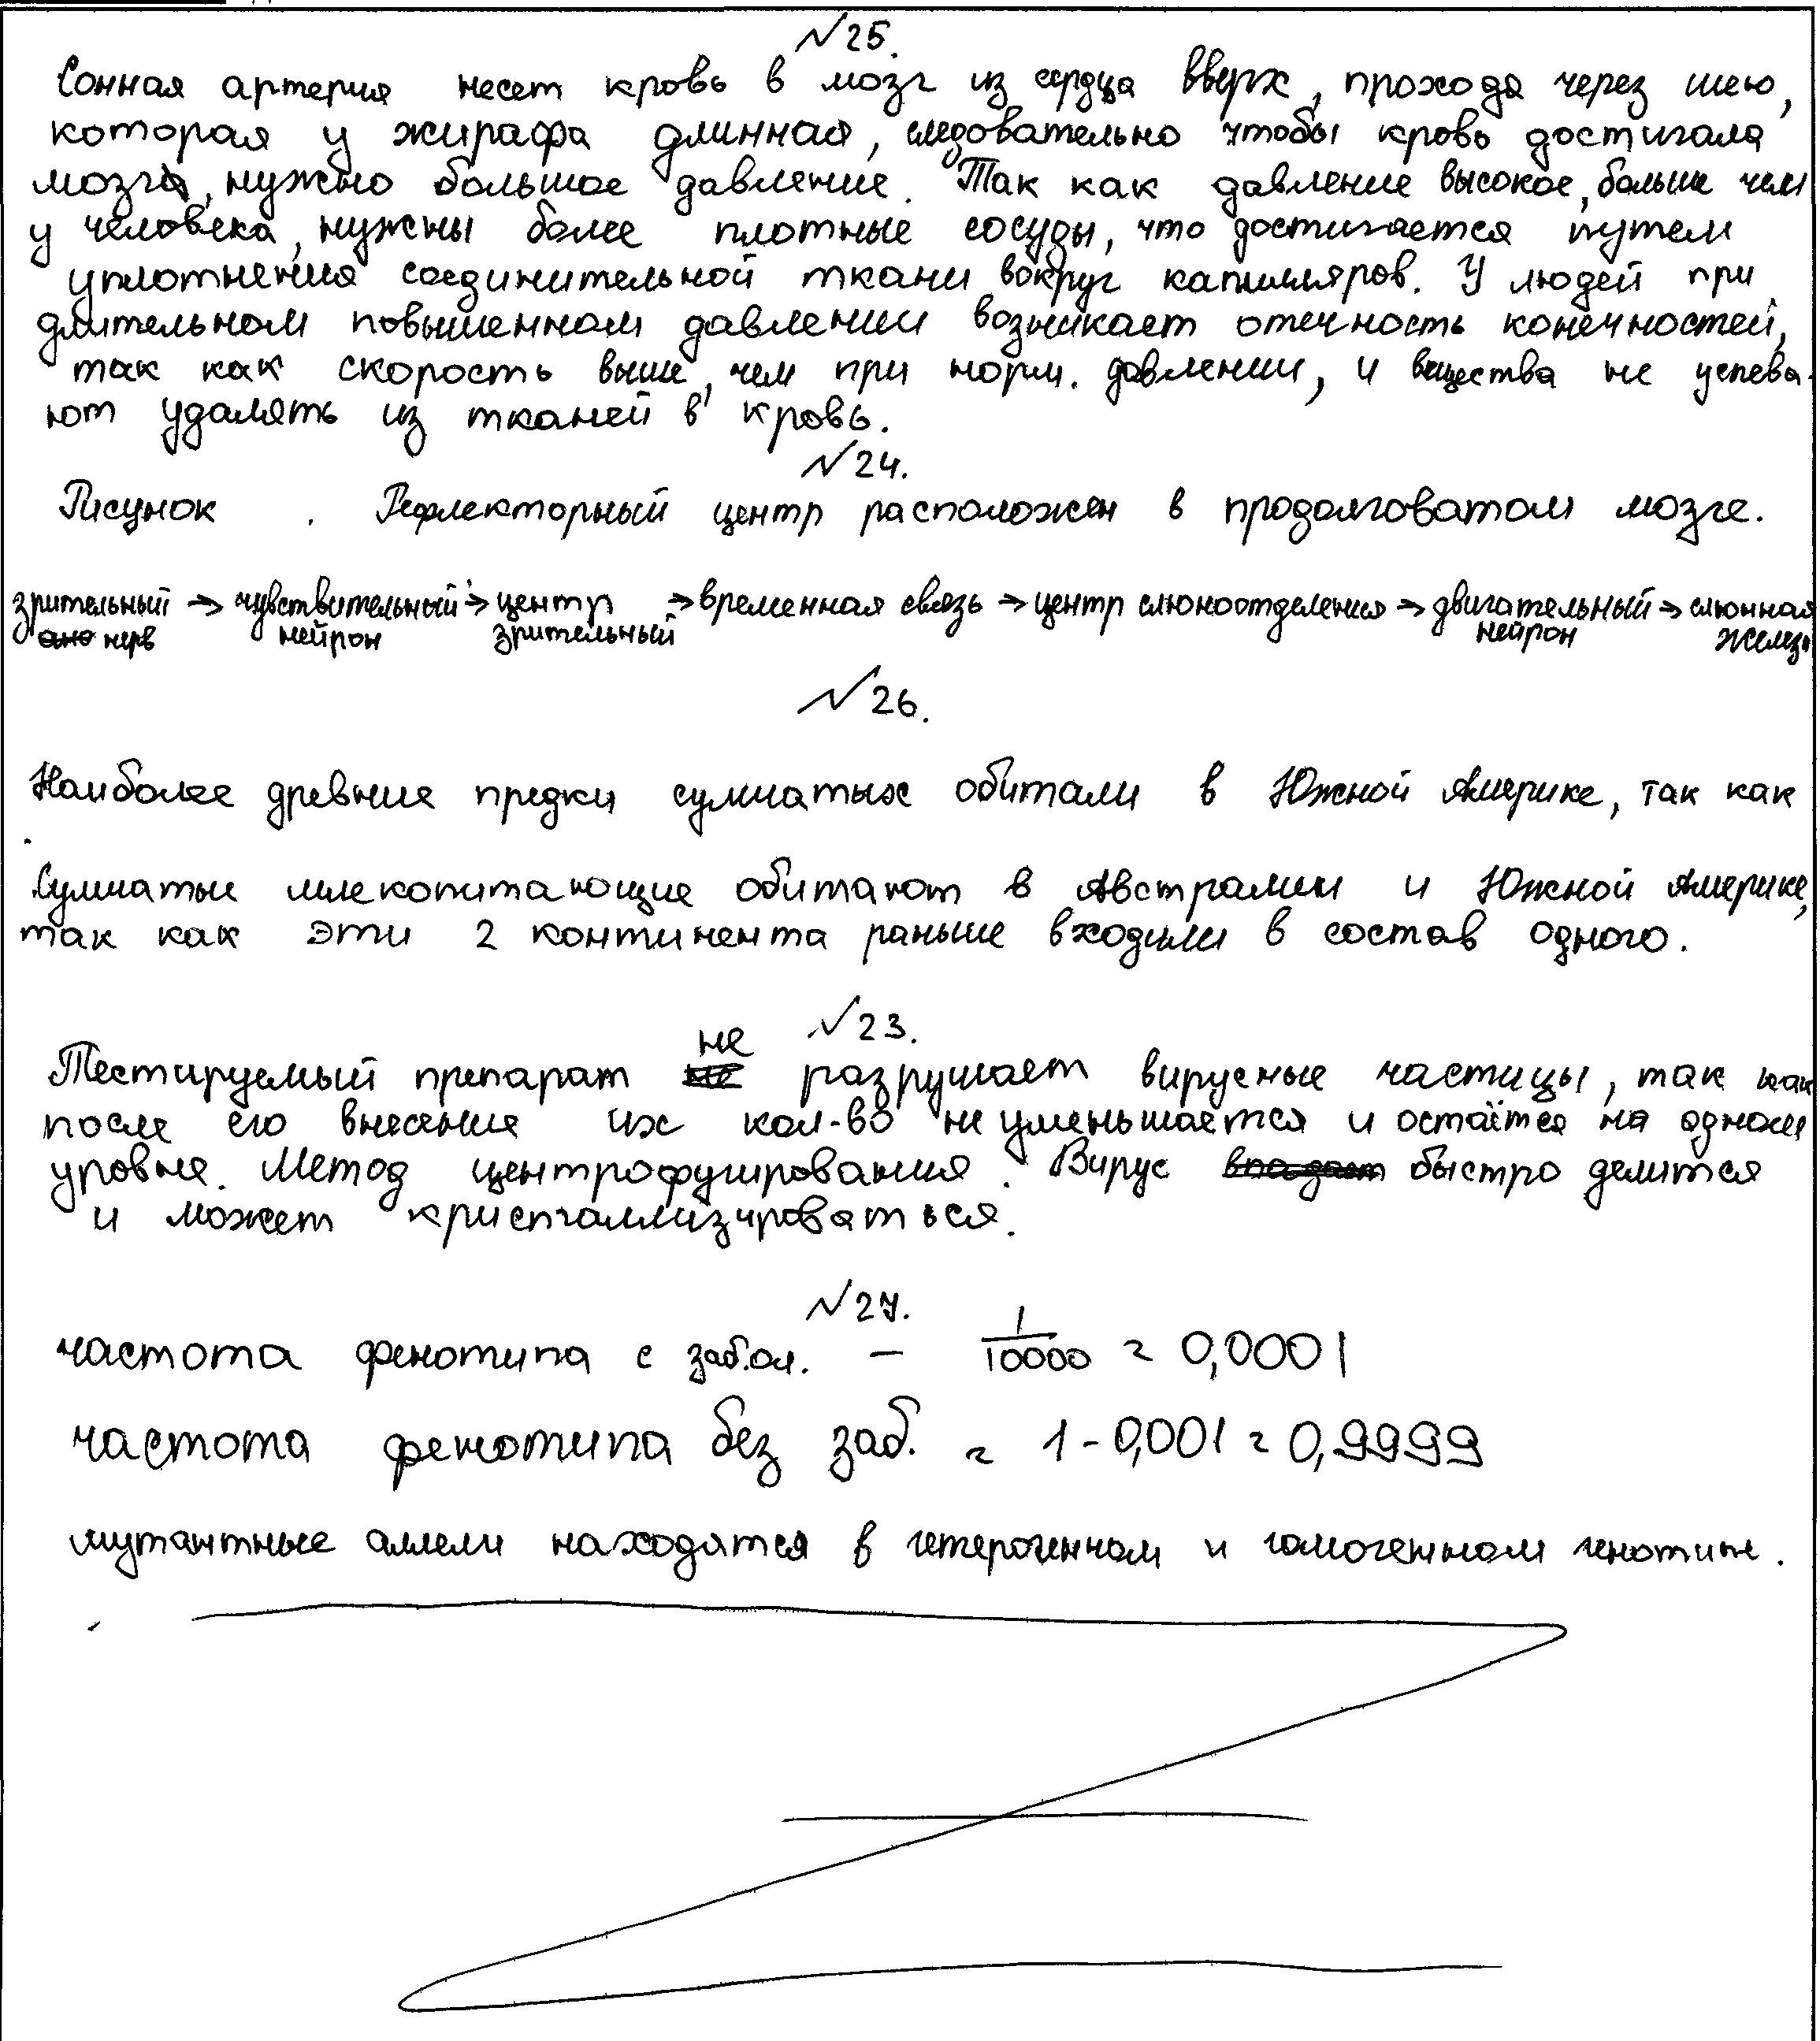 №25.
Сонная артерия несет кровь в мозг из сердца вверх, проходя через шею,
которая у жирафа длинная, следовательно чтобы кровь достигала
мозга, нужно большое давление. Так как давление высокое, больше чем
у человека, нужны более плотные сосуды, что достигается путем
уплотнения соединительной ткани вокруг капилляров. У людей при
длительном повышенном давлении возникает отечность конечностей,
так как скорость выше, чем при норм. давлении, и вещества не успева-
ют удалять из тканей в кровь.
№24.
Рисунок . Рефлекторный центр расположен в продолговатом мозге.
зрительный нерв → чувствительный нейрон → центр зрительный → временная связь → центр слюноотделения → двигательный нейрон → слюнная железа
№26.
Наиболее древние предки сумчатых обитали в Южной Америке, так как
Сумчатые млекопитающие обитают в Австралии и Южной Америке,
так как эти 2 континента раньше входили в состав одного.
№23.
Тестируемый препарат не разрушает вирусные частицы, так как
после его внесения их кол-во не уменьшается и остаётся на одном
уровне. Метод центрофугирования. Вирус быстро делится
и может кристаллизироваться.
№27.
частота фенотипа с забол. – 1/10000 = 0,0001
частота фенотипа без заб. = 1-0,001 = 0,9999
мутантные аллели находятся в гетерогенном и гомогенном генотипе.